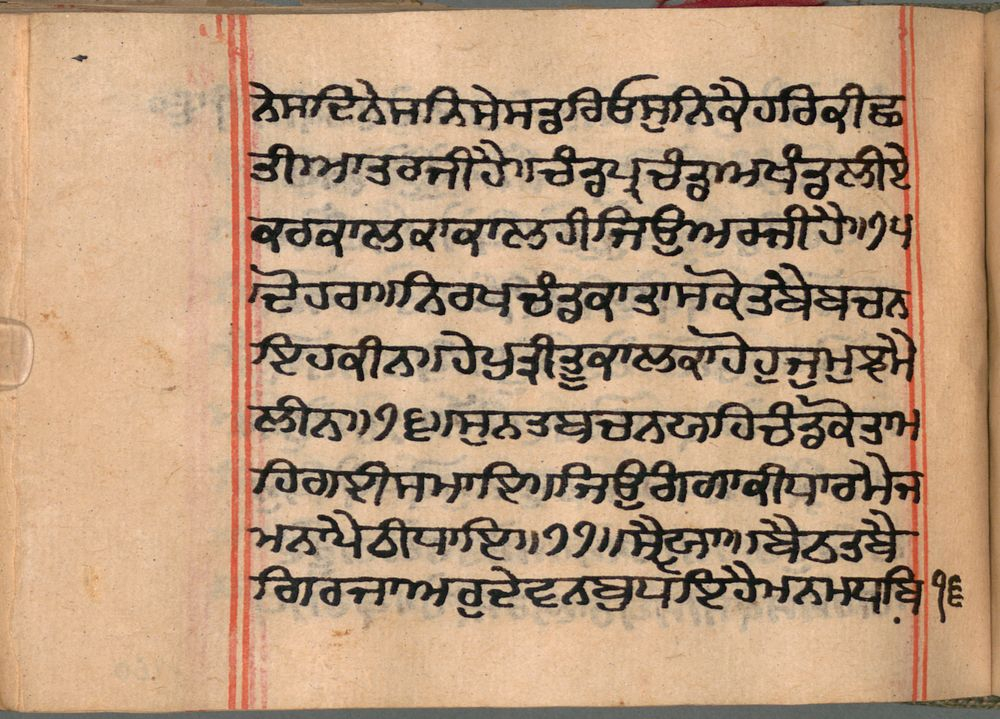 ਨੇਸਦਿਨੇਸਨਿਸੇਸਡਰਿਓਸੁਨਿਕੈਹਰਿਕੀਛ
ਤੀਆਤਰਜੀਹੈ॥ਚੰਡਪ੍ਰਚੰਡਅਖੰਡਲੀਏ
ਕਰਕਾਲਕਾਕਾਲਹੀਜਿਉਅਰਜੀਹੈ॥੧੫
ਦੋਹਰਾ॥ਨਿਰਖਚੰਡਕਾਤਾਸਕੋਤਬੈਬਚਨ
ਇਹਕੀਨ॥ਹੇਪੁਤ੍ਰੀਤੂਕਾਲਕਾਹੋਹੁਜੁਮੁਝਮੈ
ਲੀਨ॥੧੬॥ਸੁਨਤਬਚਨਯਹਿਚੰਡਕੋਤਾਮ
ਹਿਗਈਸਮਾਇ॥ਜਿਉਗੰਗਾਕੀਧਾਰਮੈਜ
ਮਨਾਪੈਠੀਧਾਇ॥੭੭॥ਸ੍ਵੈਯਾ॥ਬੈਠਤਬੈ
ਗਿਰਜਾਅਰੁਦੇਵਨਬੁਧਿਇਹੈਮਨਮਧਬਿ ੧੬